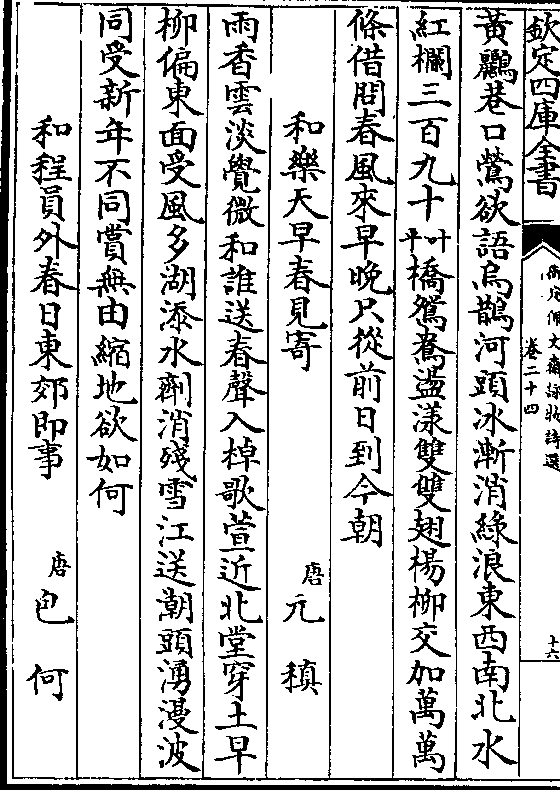 欽定四庫全書
御定佩文齋詠物詩選
卷二十四
十六
黃鸝巷口鶯欲語烏鵲河頭冰漸消綠浪東西南北水
紅欄三百九十叶平橋鴛鴦盪漾雙雙翅楊柳交加萬萬
條借問春風來早晚只從前日到今朝
和樂天早春見寄 唐元稹
雨香雲淡覺微和誰送春聲入棹歌萱近北堂穿土早
柳偏東面受風多湖添水劑消殘雪江送潮頭湧漫波
同受新年不同賞無由縮地欲如何
和程員外春日東郊即事 唐包何